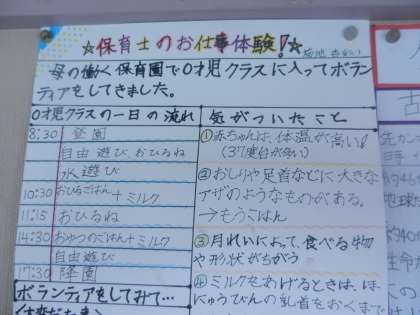 ☆保育士のお仕事体験!☆
母の働く保育園で0才児クラスに入ってボラン
ティアをしてきました。
0才児クラスの一日の流れ
8:30 登園
自由遊び、おひるね
水遊び
10:30 おひるごはん+ミルク
11:15 おひるね
14:30 おやつのごはん+ミルク
自由遊び
17:30 降園
ボランティアをしてみて…
気がついたこと
①赤ちゃんは、体温が高い!
(37度台が多い)
②おしりや足首などに大きな
アザのようなものがある。
→もうこはん
③月れいによって、食べる物
や形状がちがう
④ミルクをあげるときは、ほ
にゅうびんの乳首をおくまで